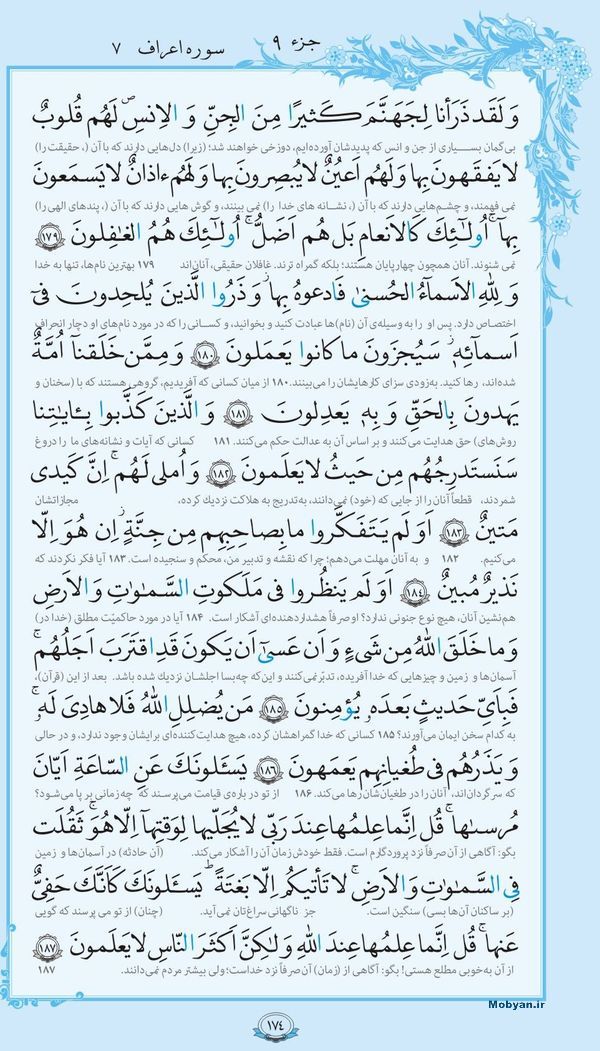 جزء ۹
سوره اعراف ۷
وَ لَقَد ذَرَأنا لِجَهَنَّمَ كَثيرًا مِنَ الجِنِّ وَ الاِنسِ ۖ لَهُم قُلوبٌ
بی‌گمان بسیاری از جن و انس که پدیدشان آورده‌ایم، دوزخی خواهند شد؛ (زیرا) دل‌هایی دارند که با آن (، حقیقت را)
لا يَفقَهونَ بِها وَ لَهُم اَعيُنٌ لا يُبصِرونَ بِها وَ لَهُم ءاذانٌ لا يَسمَعونَ
نمی فهمند، و چشم‌هایی دارند که با آن (، نشانه های خدا را) نمی بینند، و گوش هایی دارند که با آن (، پندهای الهی را)
بِها ۚ اُولٰـئِكَ كَالاَنعامِ بَل هُم اَضَلُّ ۚ اُولٰـئِكَ هُمُ الغٰفِلونَ ﴿۱۷۹﴾
نمی شنوند. آنان همچون چهارپایان هستند؛ بلکه گمراه ترند. غافلان حقیقی، آنان‌اند ۱۷۹ بهترین نام‌ها، تنها به خدا
وَ لِلّٰهِ الاَسماءُ الحُسنىٰ فَادعوهُ بِها ۖ وَ ذَرُوا الَّذينَ يُلحِدونَ فى
اختصاص دارد. پس او را به وسیله‌ی آن (نام)ها عبادت کنید و بخوانید، و کسانی را که در مورد نام‌های او دچار انحراف
اَسمائِهِ ۚ سَيُجزَونَ ما كانوا يَعمَلونَ ﴿۱۸۰﴾ وَ مِمَّن خَلَقنا اُمَّةٌ
شده‌اند، رها کنید. به‌زودی سزای کارهایشان را می‌بینند. ۱۸۰ از میان کسانی که آفریدیم، گروهی هستند که با (سخنان و
يَهدونَ بِالحَقِّ وَ بِهِ يَعدِلونَ ﴿۱۸۱﴾ وَ الَّذينَ كَذَّبوا بِـٔايٰتِنا
روش‌های) حق هدایت می‌کنند و بر اساس آن به عدالت حکم می‌کنند. ۱۸۱ کسانی که آیات و نشانه‌های ما را دروغ
سَنَستَدرِجُهُم مِن حَيثُ لا يَعلَمونَ ﴿۱۸۲﴾ وَ اُملى لَهُم ۚ اِنَّ كَيدى
شمردند، قطعاً آنان را از جایی که (خود) نمی‌دانند، به‌تدریج به هلاکت نزدیك کرده، مجازاتشان
مَتينٌ ﴿۱۸۳﴾ اَوَ لَم يَتَفَكَّروا ۗ ما بِصاحِبِهِم مِن جِنَّةٍ ۚ اِن هُوَ اِلّا
می‌کنیم. ۱۸۲ و به آنان مهلت می‌دهم؛ چرا که نقشه و تدبیر من، محکم و سنجیده است. ۱۸۳ آیا فکر نکردند که
نَذيرٌ مُبينٌ ﴿۱۸۴﴾ اَوَ لَم يَنظُروا فى مَلَكوتِ السَّمٰوٰتِ وَ الاَرضِ
هم‌نشین آنان، هیچ نوع جنونی ندارد؟ او صرفاً هشداردهنده‌ای آشکار است. ۱۸۴ آیا در مورد حاکمیّت مطلق (خدا در)
وَ ما خَلَقَ اللّٰهُ مِن شَىءٍ وَ اَن عَسىٰ اَن يَكونَ قَدِ اقتَرَبَ اَجَلُهُم ۖ
آسمان‌ها و زمین و چیزهایی که خدا آفریده، تدبّر نمی‌کنند و این‌که چه‌بسا اجلشان نزدیك شده باشد. بعد از این (قرآن)،
فَبِاَىِّ حَديثٍ بَعدَهُ يُؤمِنونَ ﴿۱۸۵﴾ مَن يُضلِلِ اللّٰهُ فَلا هادِىَ لَهُ ۚ
به کدام سخن ایمان می‌آورند؟ ۱۸۵ کسانی که خدا گمراهشان کرده، هیچ هدایت‌کننده‌ای برایشان وجود ندارد، و در حالی
وَ يَذَرُهُم فى طُغيانِهِم يَعمَهونَ ﴿۱۸۶﴾ يَسـَٔلونَكَ عَنِ السّاعَةِ اَيّانَ
که سرگردان‌اند، آنان را در طغیان‌شان رها می‌کند. ۱۸۶ از تو در باره‌ی قیامت می‌پرسند که چه‌زمانی بر پا می‌شود؟
مُرسٰها ۖ قُل اِنَّما عِلمُها عِندَ رَبّى لا يُجَلّيها لِوَقتِها اِلّا هُوَ ۚ ثَقُلَت
بگو: آگاهی از آن صرفاً نزد پروردگارم است. فقط خودش زمان آن را آشکار می‌کند. (آن حادثه) در آسمان‌ها و زمین
فِى السَّمٰوٰتِ وَ الاَرضِ ۚ لا تَأتيكُم اِلّا بَغتَةً ۗ يَسـَٔلونَكَ كَاَنَّكَ حَفِىٌّ
(بر ساکنان آن‌ها بسی) سنگین است. جز ناگهانی سراغ‌تان نمی‌آید. (چنان) از تو می پرسند که گویی
عَنها ۖ قُل اِنَّما عِلمُها عِندَ اللّٰهِ وَ لٰكِنَّ اَكثَرَ النّاسِ لا يَعلَمونَ ﴿۱۸۷﴾
از آن به‌خوبی مطلع هستی! بگو: آگاهی از (زمان) آن صرفاً نزد خداست؛ ولی بیشتر مردم نمی‌دانند. ۱۸۷
Mobyan.ir
۱۷٤